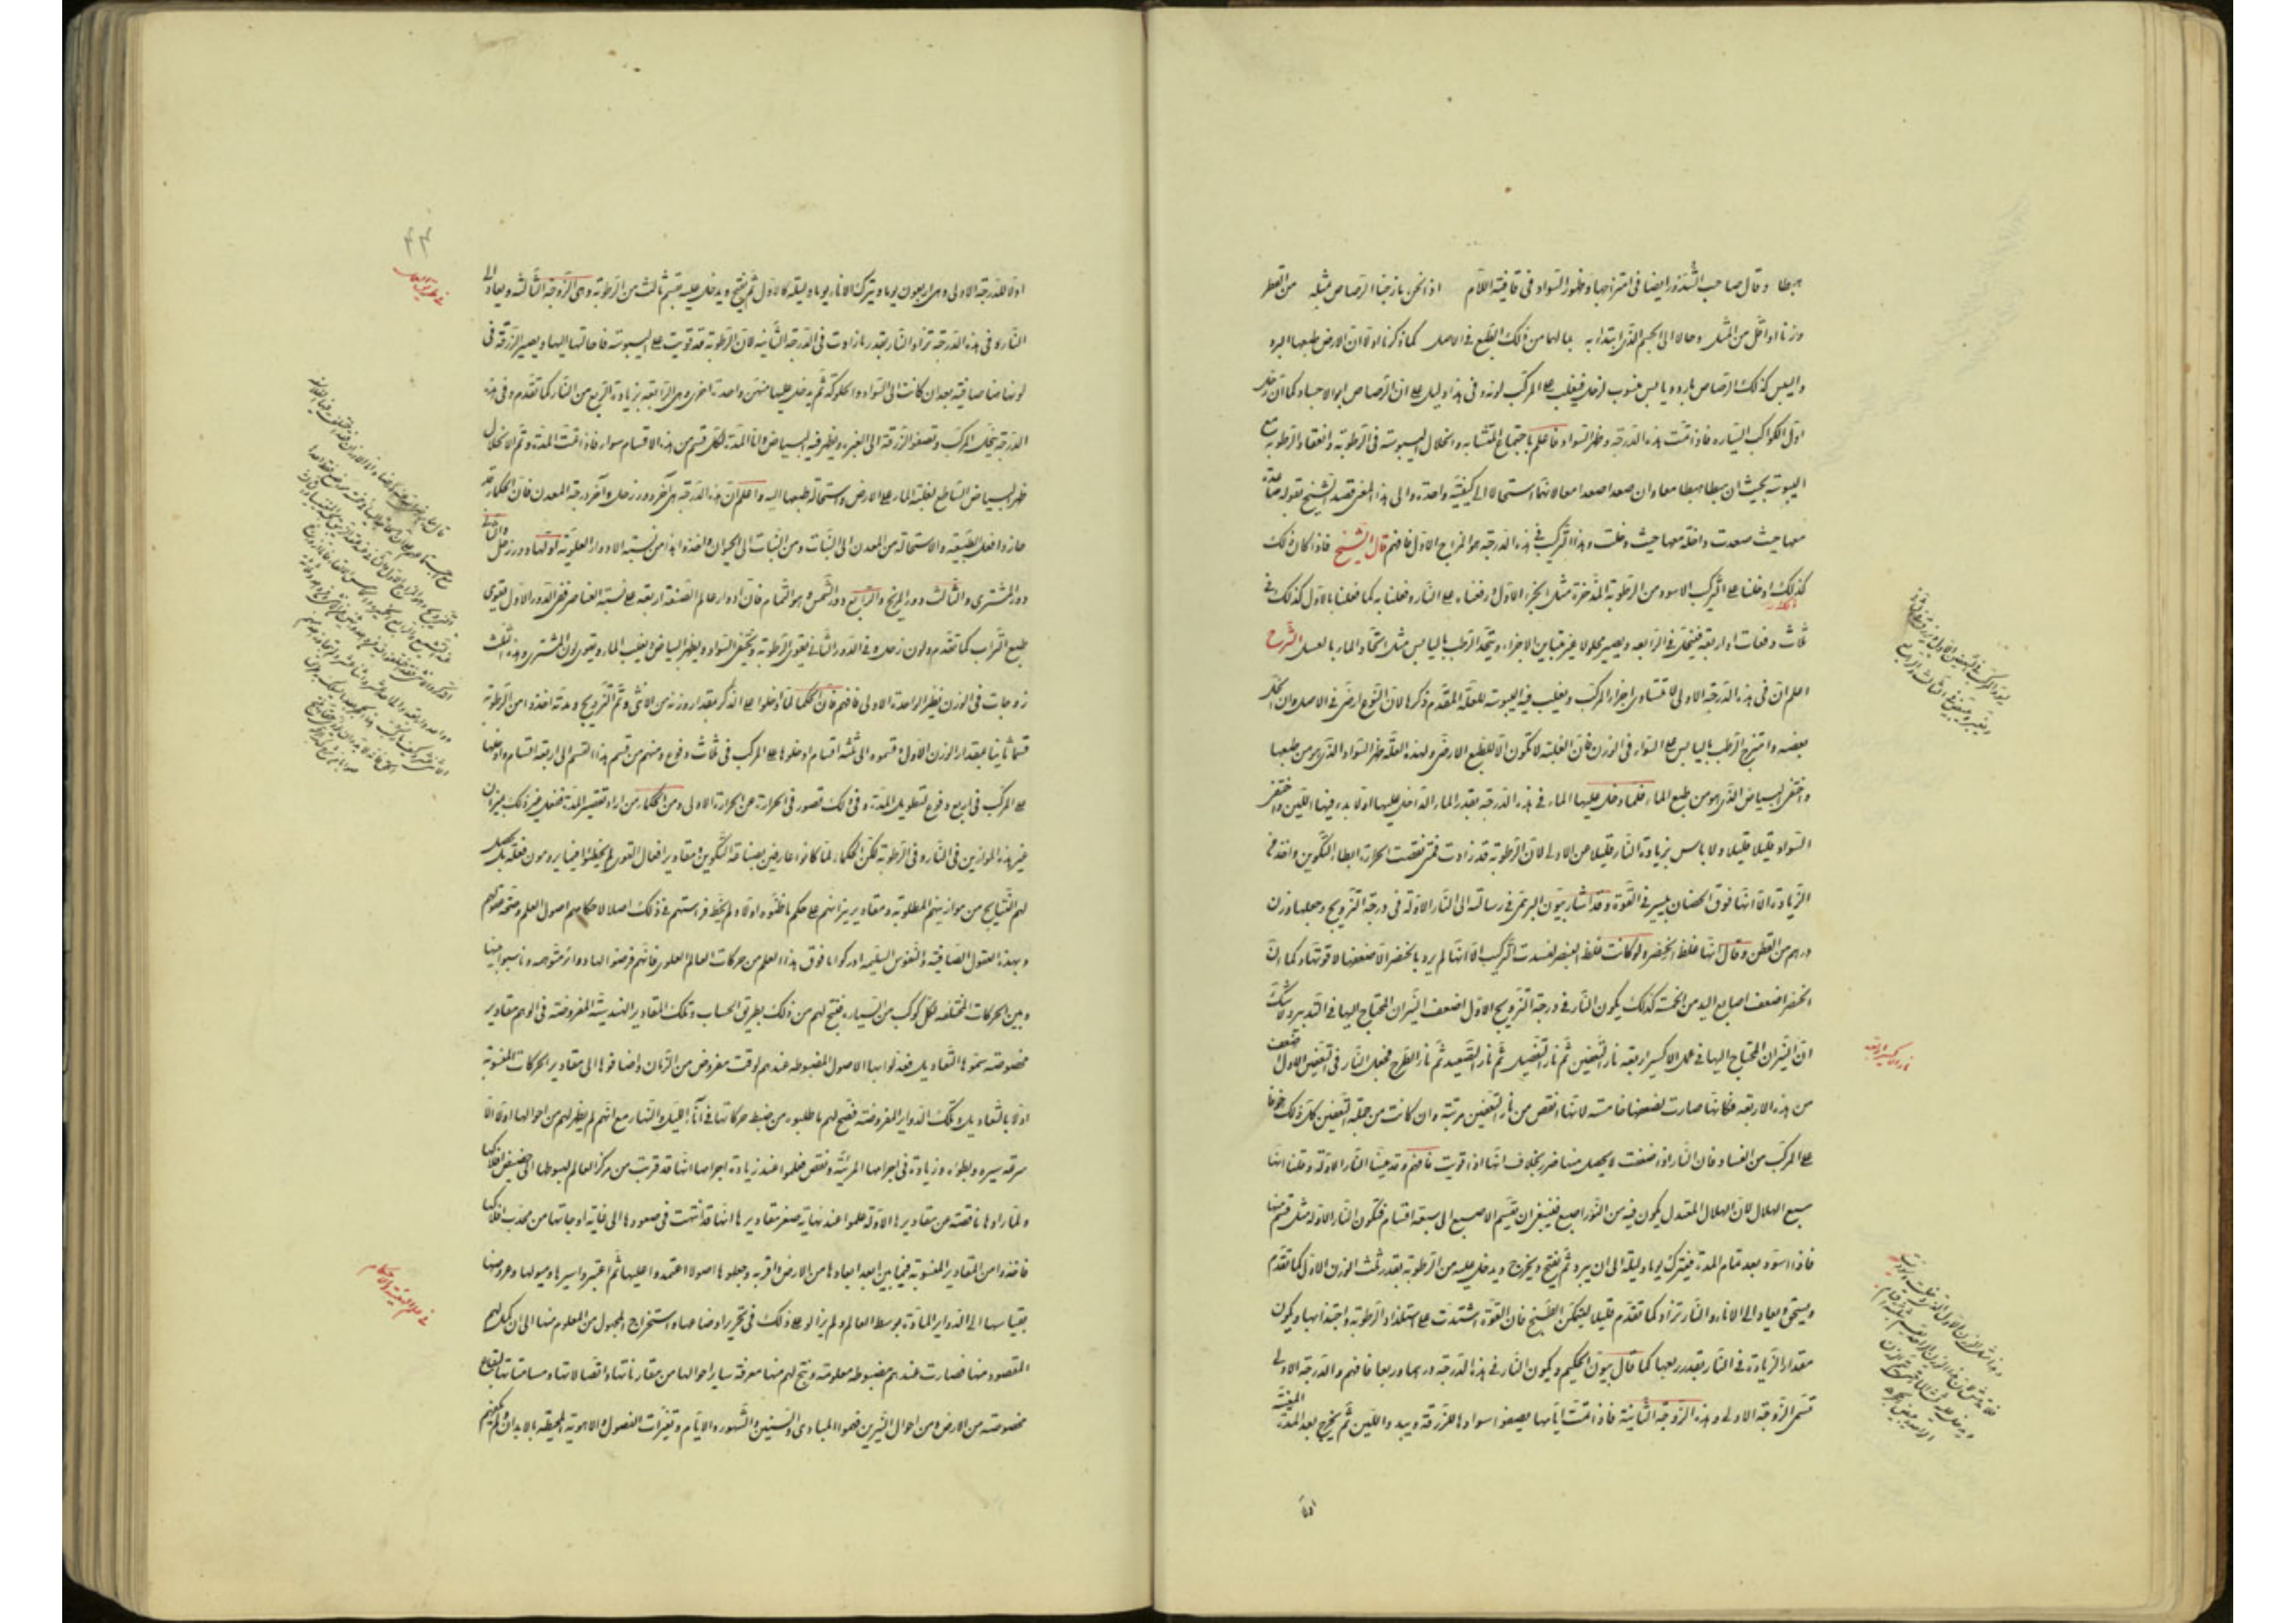 هبطا وقال صاحب الشذور ايضا فى امتزاجها وظهور السواد فى قافية اللام اذا نحن مازجنا الرصاص بمثله من القطر
وزنا او اقل من المثل وحالا الى الجسم الذى ابتدا به بما لهما من ذلك الطبع فى الاصل كما ذكرنا اولا ان الارض طبعها البرد
واليبس كذلك الرصاص بارد ويابس منسوب لزحل فيغلب على المركب لونه وفى هذا دليل على ان الرصاص ابو الاجساد كما ان زحل
اول الكواكب السيارة فاذا تمت هذه الدرجة وظهر السواد فاعلم باجتماع المتشابه وانحلال اليبوسة فى الرطوبة وانعقاد الرطوبة مع
اليبوسة بحيث ان هبطا هبطا معا وان صعدا صعدا معا لانهما استحالا الى كيفية واحدة والى هذا المعنى قصد الشيخ بقوله صاعدة
معها حيث صعدت داخلة معها حيث دخلت وهذا التركيب فى هذه الدرجة هو المزاج الاول فافهم قال الشيخ فاذا كان ذلك
كذلك ادخلنا على التركيب الاسود من الرطوبة المدخرة مثل الجزء الاول ورفعناه على النار وفعلنا به كما فعلنا بالاول كذلك فى
ثلاث دفعات او اربعة فينحل فى الرابعة ويصير محلولا غير متباين الاجزاء ويتحد الرطب باليابس مثل اتحاد الماء بالعسل الشرح
اعلم ان فى هذه الدرجة الاولى لا تتساوى اجزاء المركب ويغلب فيه اليبوسة للعلة المقدم ذكرها لان النوع ارضى فى الاصل وان انحل
بعضه وامتزج الرطب باليابس على السواء فى الوزن فان الغلبة لا تكون الا للطبع الارضى ولهذه العلة ظهر السواد الذى هو من طبعها
واختفى البياض الذى هو من طبع الماء فلما دخل عليها الماء فى هذه الدرجة بقدر الماء الداخل عليها اولا بدء فيها اللين واختفى
السواد قليلا قليلا ولا باس بزيادة النار قليلا عن الاولى لان الرطوبة قد زادت فمتى نقصت الحرارة ابطا التكوين واخذ فى
الزيادة الا انها فوق الحضان بيسير فى القوة وقد اشار بيون البرهمى فى رسالته الى النار الاولة فى درجة التزويج وجعلها وزن
درهم من القطن وقال انها غلظ الخنصر ولو كانت غلظ البنصر لفسدت التركيب الا انها لم يرد بالخنصر الا ضعفها لا قوتها وكما ان
الخنصر اضعف اصابع اليد من الخمسة كذلك يكون النار فى درجة التزويج الاول اضعف النيران المحتاج اليها فى التدبير ولا شك
ان النيران المحتاج اليها فى عمل الاكسير اربعة نار التعفين ثم نار التفصيل ثم نار التصعيد ثم نار الطرح فجعل النار فى التعفين الاول اضعف
من هذه الاربعة فكانها صارت لضعفها خامسة لانها انقص من نار التعفين مرتبة وان كانت من جملة التعفين كل ذلك خوفا
على المركب من الفساد فان النار اذا ضعفت لا يحصل منها ضرر بخلاف انها اذا قويت فافهم وقد عينا النار الاولة وقلنا انها
سبع الهلال لان الهلال المعتدل يكون فيه من النور اصبع فينبغى ان تقسم الاصبع الى سبعة اقسام فتكون النار الاولة مثل قسم منها
فاذا اسود بعد تمام المدة فيترك يوما وليلة الى ان يبرد ثم يفتح ويخرج ويدخل عليه من الرطوبة بقدر ثلث الوزن الاول كما تقدم
ويسحق ويعاد الى الاثار والنار تزاد كما تقدم قليلا ليتمكن الطبخ فان القوة اشتدت على استلذاذ الرطوبة واجتذابها ويكون
مقدار الزيادة فى النار بقدر ربعها كما قال بيون الحكيم ويكون النار فى هذه الدرجة درهما وربعا فافهم والدرجة الاولى
تسمى الزوجة الاولى وهذه الزوجة الثانية فاذا تمت ايامها يصفوا سوادها للزرقة ويبد واللين ثم يخرج بعد المدة المعينة
اولا
نار الاكسير اربعة
٤٤
اولا للدرجة الاولى وهى اربعون يوما ويترك الاثار يوما وليلة كالاول ثم يفتح ويدخل عليه قسم ثالث من الرطوبة وهى الزوجة الثالثة ويعاد الى
النار وفى هذه الدرجة تزاد النار بقدر ما زادت فى الدرجة الثانية لان الرطوبة قد قويت على اليبوسة فاحالتها اليها ويصير الزرقة فى
لونها صافية بعد ان كانت الى السواد والحلوكة ثم يدخل عليها منهن واحدة اخرى وهى الرابعة بزيادة الربع من النار كما تقدم وفى هذه
الدرجة ينحل المركب وتصفو الزرقة الى الغبرة ويظهر فيه البياض واما المدة لكل قسم من هذه الاقسام سواء فاذا تمت المدة وتم الانحلال
ظهر البياض الساطع لغلبة الماء على الارض واستحالة طبعها اليه واعلم ان هذه الدرجة هى آخر دور زحل وآخر درجة المعدن فان الحكماء قد
حازوا فعل الطبيعة والاستحالة من المعدن الى النبات ومن النبات الى الحيوان واخذوا هذا من نسبة الادوار العلوية اولها دور زحل والثانى
دور المشترى والثالث دور المريخ والرابع دور الشمس وهو التمام فان ادوار عالم الصنعة اربعة على نسبة العناصر ففى الدور الاول يقوى
طبع التراب كما تقدم ولون زحل وفى الدور الثانى يقوى الرطوبة ويختفى السواد ويظهر البياض ويغلب الماء ويقوى لون المشترى وهذه الثلث
زوجات فى الوزن نظير الواحدة الاولى فافهم فان الحكما لما ادخلوا على الذكر مقدار وزنه من الانثى وتم التزويج ومدته اخذوا من الرطوبة
قسما ثانيا بمقدار الوزن الاول وقسموه الى ثلثة اقسام وادخلوها على المركب فى ثلاث دفوع ومنهم من قسم هذا القسم الى اربعة اقسام وادخلها
على المركب فى اربع دفوع لتطويل المدة وفى ذلك قصور فى الحرارة عن الحرارة الاولى ومن الحكماء من اراد تقصير المدة ففعل غير ذلك بميزان
غير هذه الموازين فى النار وفى الرطوبة لكن الحكماء لما كانوا عارفين بصناعة التكوين ومقادير افعال القوى لم يخطئوا فيما يرومون فعله بل يحصل
لهم النتايج من موازينهم المطلوبة ومقادير نيرانهم على حكم ما ظنوه اولا ولم يخط فراستهم فى ذلك اصلا لاحكامهم اصول العلم وصحة تصورهم
وبهذه العقول الصافية والنفوس السليمة ادركوا ما فوق هذا العلم من حركات العالم العلوى فانهم فرضوا لها دوائر متوهمة وناسبوا بينها
وبين الحركات المختلفة لكل كوكب من السيارة فنتج لهم من ذلك بطريق الحساب وتلك المقادير الهندسية المفروضة فى الوهم مقادير
مخصوصة سموها التعاديل فعدلوا بها الاصول المضبوطة عندهم لوقت مفروض من الزمان واضافوها الى مقادير الحركات المنسوبة
اولا بالتعاديل وتلك الدواير المفروضة فصح لهم ما طلبوه من ضبط حركاتها فى آناء الليل والنهار مع انهم لم يظهر لهم من احوالها اولا الا
سرعة سيره وبطؤه وزيادة فى اجرامها المرئية ونقص فعلموا عند زيادة اجرامها انها قد قربت من مركز العالم لهبوطها الى حضيض افلاكها
ولما راوها ناقصة عن مقاديرها الاولة علموا عند نهاية صغر مقاديرها انها قد انتهت فى صعودها الى غاية اوجاتها من محدب افلاكها
فاخذوا من المقادير المنسوبة فيما بين ابعد ابعادها من الارض واقربه وجعلوها اصولا اعتمدوا عليها ثم اعتبروا سيرها وميولها وعروضها
بقياسها الى الدواير المارة بوسط العالم ولم يزالوا على ذلك فى تحرير اوضاعها واستخراج المجهول من المعلوم منها الى ان كمل لهم
المقصود منها فصارت عندهم مضبوطة معلومة ونتج لهم منها معرفة ساير احوالها من مقارناتها واتصالاتها ومسامتاتها لبقاع
مخصوصة من الارض ومن احوال النيرين فهموا المبادى والسنين والشهور والايام وتغيرات الفصول والاهوية المحيطة بالابدان ولم يكفهم